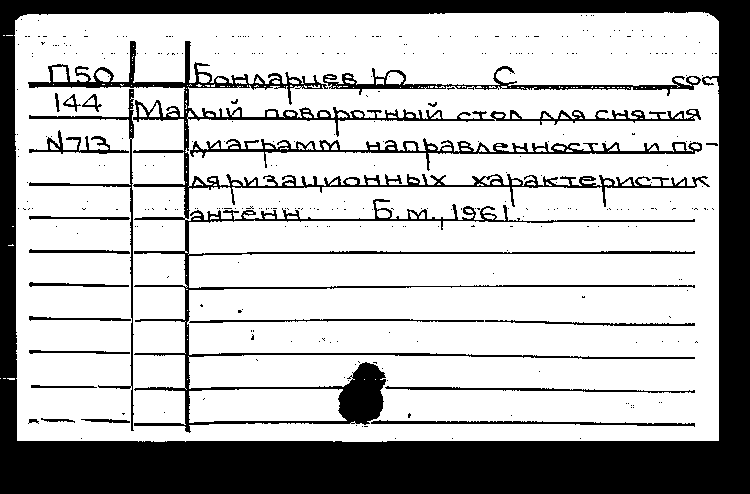 П50 Бондарцев, Ю С , сост
144 Малый поворотный стол для снятия
N713 диаграмм направленности и по-
ляризационных характеристик
антенн. Б.м., 1961.